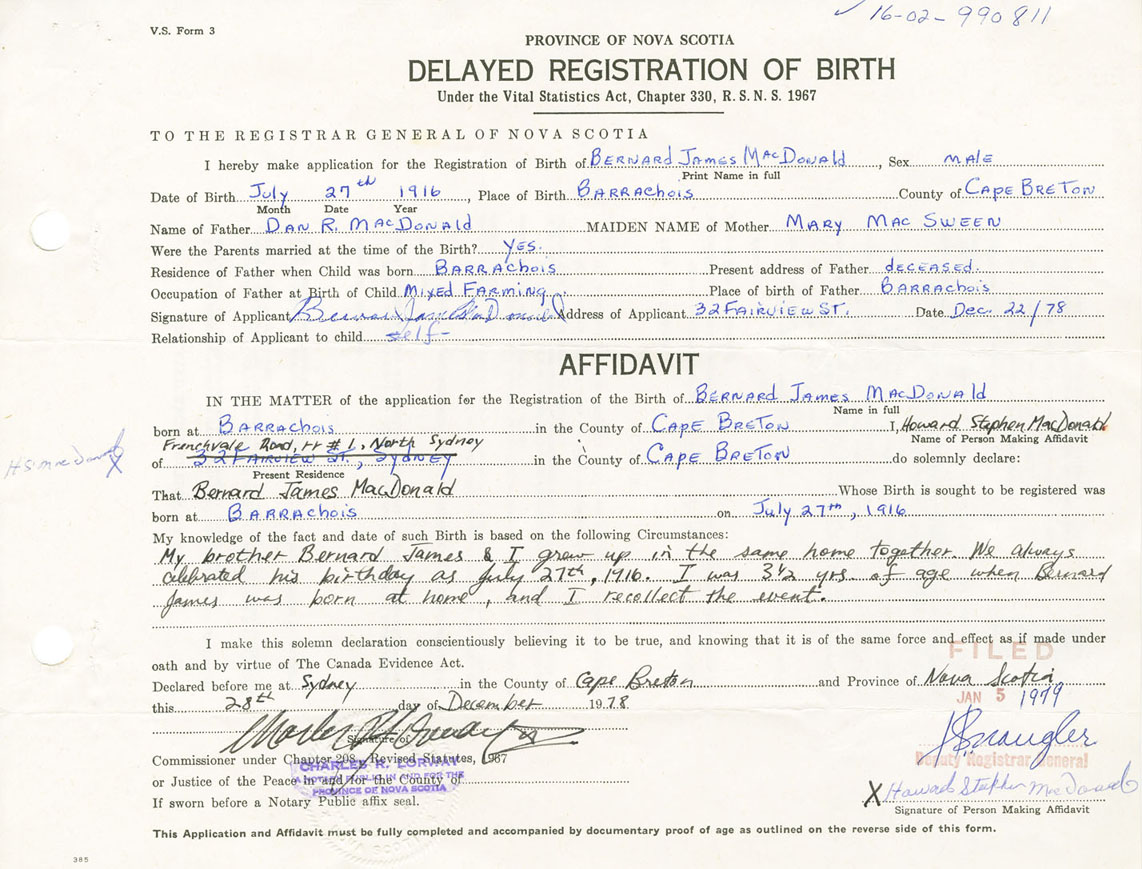 16-02-990811
V.S. Form 3
PROVINCE OF NOVA SCOTIA
DELAYED REGISTRATION OF BIRTH
Under the Vital Statistics Act, Chapter 330, R. S. N. S. 1967
TO THE REGISTRAR GENERAL OF NOVA SCOTIA
I hereby make application for the Registration of Birth of BERNARD JAMES MACDONALD, Sex MALE
Print Name in full
Date of Birth July 27th 1916, Place of Birth BARRACHOIS County of CAPE BRETON
Month Date Year
Name of Father DAN R. MACDONALD MAIDEN NAME of Mother MARY MAC SWEEN
Were the Parents married at the time of the Birth? YES.
Residence of Father when Child was born BARRACHOIS Present address of Father deceased.
Occupation of Father at Birth of Child MIXED FARMING. Place of birth of Father BARRACHOIS
Signature of Applicant Bernard James MacDonald Address of Applicant 32 FAIRVIEW ST. Date Dec. 22/78
Relationship of Applicant to child self-
AFFIDAVIT
IN THE MATTER of the application for the Registration of the Birth of BERNARD JAMES MACDONALD
Name in full
born at BARRACHOIS in the County of CAPE BRETON I, Howard Stephen MacDonald
Name of Person Making Affidavit
Frenchvale Road, rr # 1, North Sydney
HSMacDonald X
of 32 FAIRVIEW ST., SYDNEY in the County of CAPE BRETON do solemnly declare:
Present Residence
That Bernard James MacDonald Whose Birth is sought to be registered was
born at BARRACHOIS on July 27th, 1916
My knowledge of the fact and date of such Birth is based on the following Circumstances:
My brother Bernard James & I grew up in the same home together. We always
celebrated his birthday as July 27th, 1916. I was 3½ yrs. of age when Bernard
James was born at home, and I recollect the event.
I make this solemn declaration conscientiously believing it to be true, and knowing that it is of the same force and effect as if made under
oath and by virtue of The Canada Evidence Act.
FILED
Declared before me at Sydney in the County of Cape Breton and Province of Nova Scotia
JAN 5 1979
this 28th day of December 1978
Signature of
Commissioner under Chapter 298, Revised Statutes, 1967
Deputy Registrar General
CHARLES R. LORWAY
or Justice of the Peace in and for the County of
A NOTARY PUBLIC IN AND FOR THE
PROVINCE OF NOVA SCOTIA
If sworn before a Notary Public affix seal.
X Howard Stephen MacDonald
Signature of Person Making Affidavit
This Application and Affidavit must be fully completed and accompanied by documentary proof of age as outlined on the reverse side of this form.
385